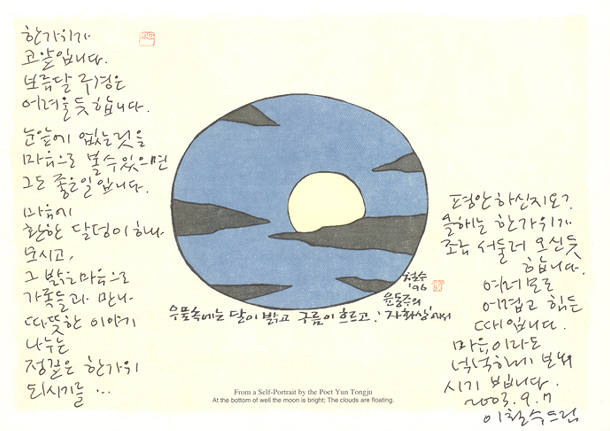 한가위가
코앞입니다.
보름달 구경은
어려울듯합니다.
눈앞에 없는것을
마음으로 볼수있으면
그도 좋은일입니다.
마음에
환한 달덩이 하나
모시고,
그 밝은 마음으로
가족들과 만나
따뜻한 이야기
나누는
정깊은 한가위
되시기를 ...
철수
'96
윤동주의
우물속에는 달이 밝고 구름이 흐르고! '자화상'에서
From a Self-Portrait by the Poet Yun Tongju
At the bottom of well the moon is bright; The clouds are floating.
평안하신지요?
올해는 한가위가
조금 서둘러 오신듯
합니다.
여러모로
어렵고 힘든
때입니다.
마음이라도
넉넉하게 보내
시기 빕니다.
2003. 9. 7
이철수드림